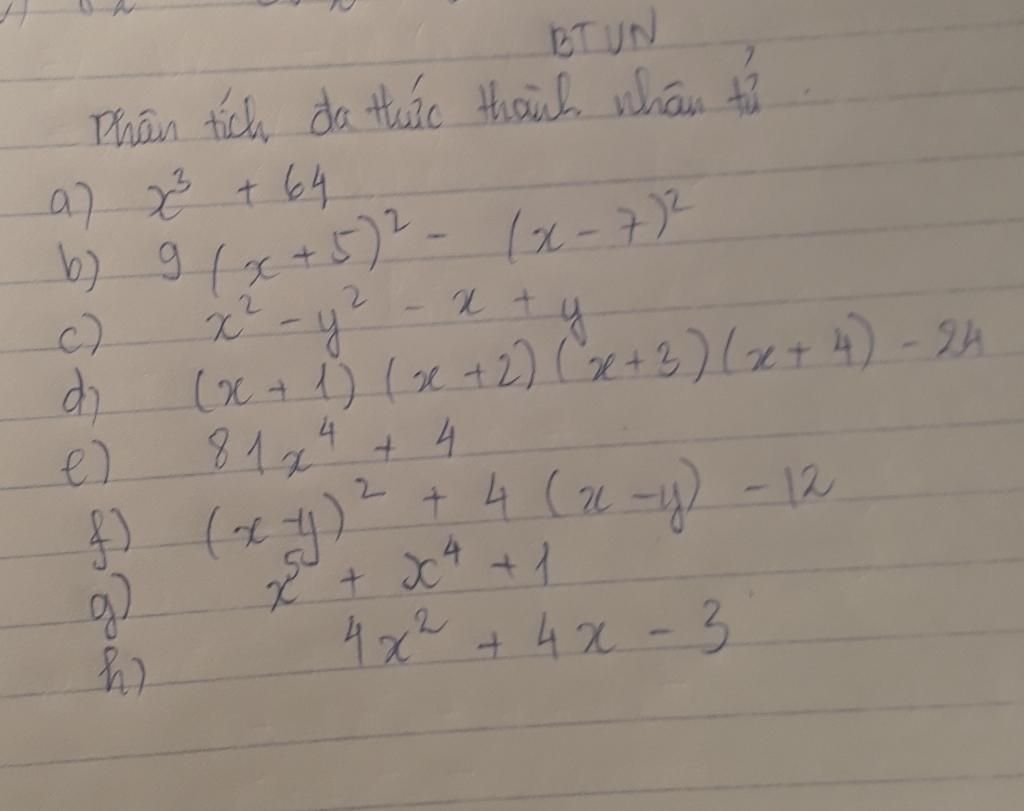 BTVN
Phân tích đa thức thành nhân tử
a) x³ + 64
b) 9(x + 5)² - (x - 7)²
c) x² - y² - x + y
d) (x + 1)(x + 2)(x + 3)(x + 4) - 24
e) 81x⁴ + 4
f) (x - y)² + 4(x - y) - 12
g) x⁵ + x⁴ + 1
h) 4x² + 4x - 3